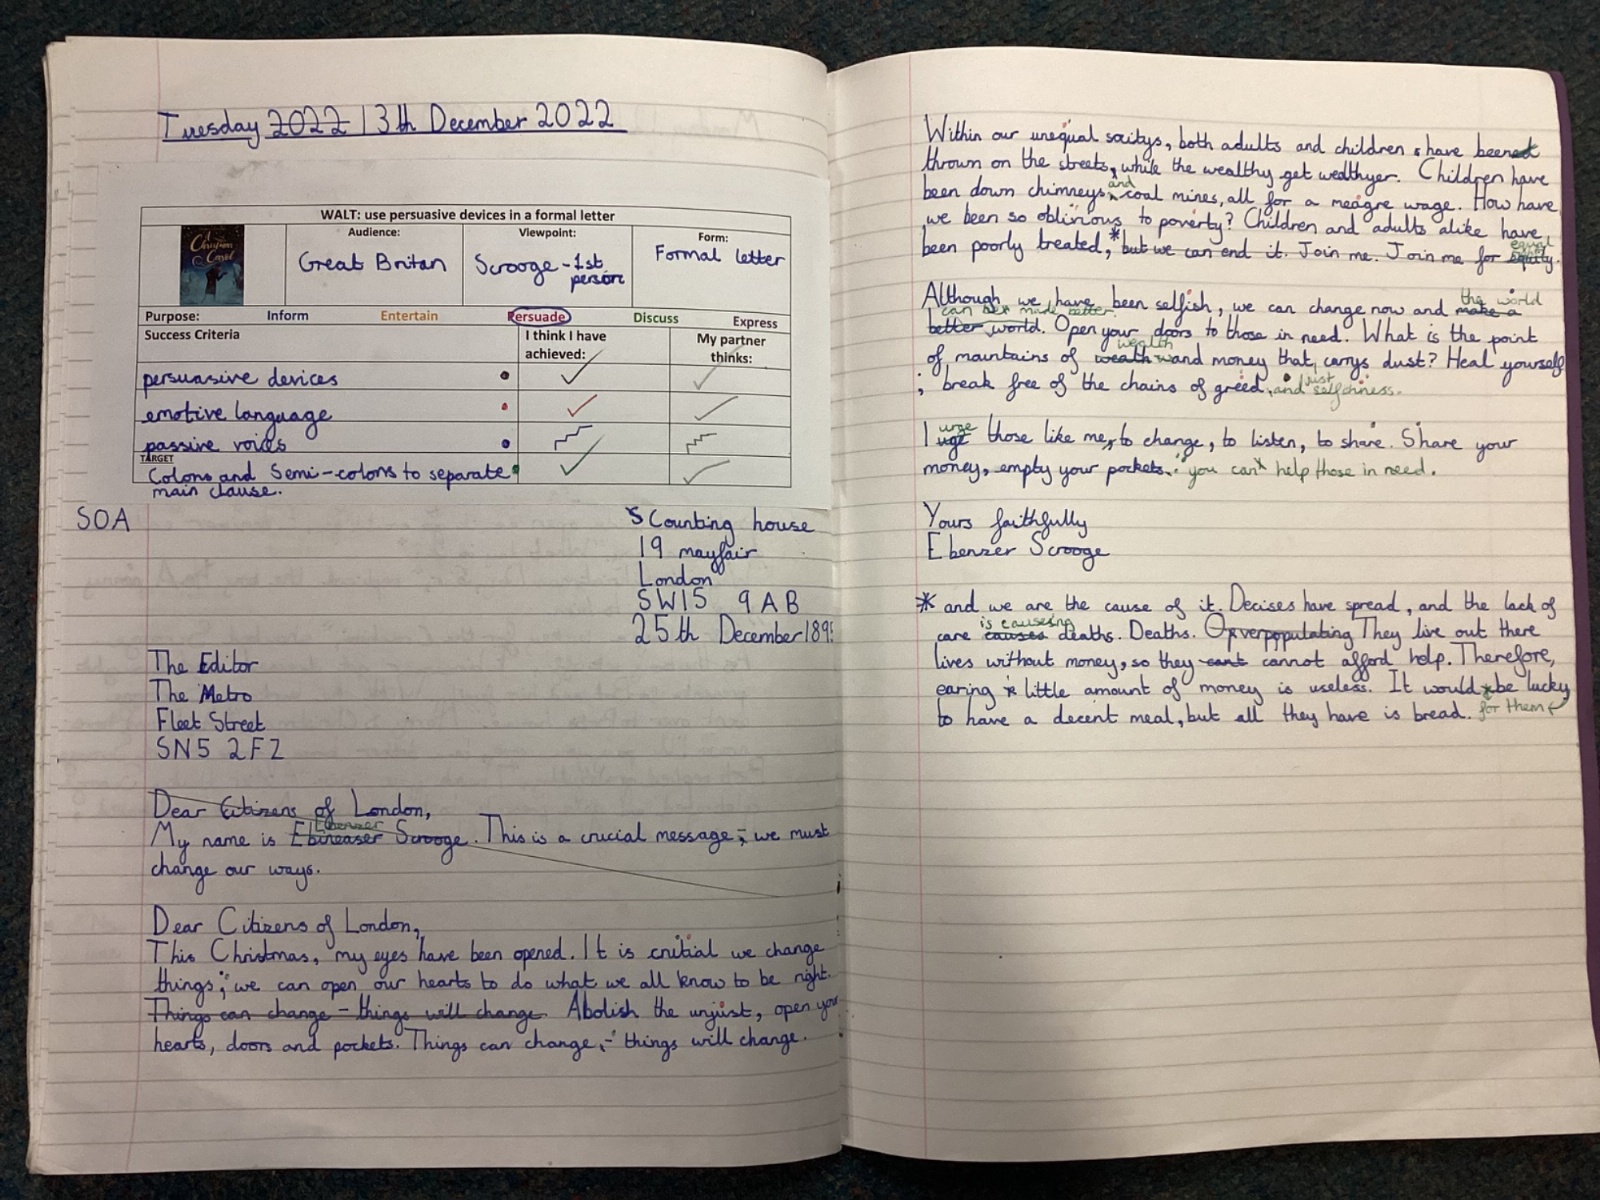 Tuesday 2022 13th December 2022
WALT: use persuasive devices in a formal letter
A Christmas Carol
Audience:
Great Britan
Viewpoint:
Scrooge - 1st
person
Form:
Formal letter
Purpose: Inform Entertain Persuade Discuss Express
Success Criteria
I think I have
achieved:
My partner
thinks:
persuasive devices
emotive language
passive voices
TARGET
Colons and Semi-colons to separate
main clause.
SOA
Counting house
19 mayfair
London
SW15 9AB
25th December
The Editor
The Metro
Fleet Street
SN5 2FZ
Dear Citizens of London,
Ebenzer
My name is Ebineaser Scrooge. This is a crucial message; we must
change our ways.
Dear Citizens of London,
This Christmas, my eyes have been opened. It is critial we change
things; we can open our hearts to do what we all know to be right.
Things can change - things will change. Abolish the unjust, open your
hearts, doors and pockets. Things can change, - things will change.
Within our unequal socitys, both adults and children have been
thrown on the streets, while the wealthy get wealthyer. Children have
and
been down chimneys, coal mines, all for a meagre wage. How have
we been so oblivious to poverty? Children and adults alike have
equal
been poorly treated,* but we can end it. Join me. Join me for equity.
Although we have been selfish, we can change now and make a
the world
can be made better.
better world. Open your doors to those in need. What is the point
wealth
of maintains of wealth and money that carrys dust? Heal yourself
; break free of the chains of greed, and selfishness.
urge
I uge those like me, to change, to listen, to share. Share your
money, empty your pockets.: you can help those in need.
Yours faithfully
Ebenzer Scrooge
* and we are the cause of it. Decises have spread, and the lack of
is causeing
care causes deaths. Deaths. Overpopulating They live out there
lives without money, so they cant cannot afford help. Therefore,
earing little amount of money is useless. It would be lucky
for them
to have a decent meal, but all they have is bread.